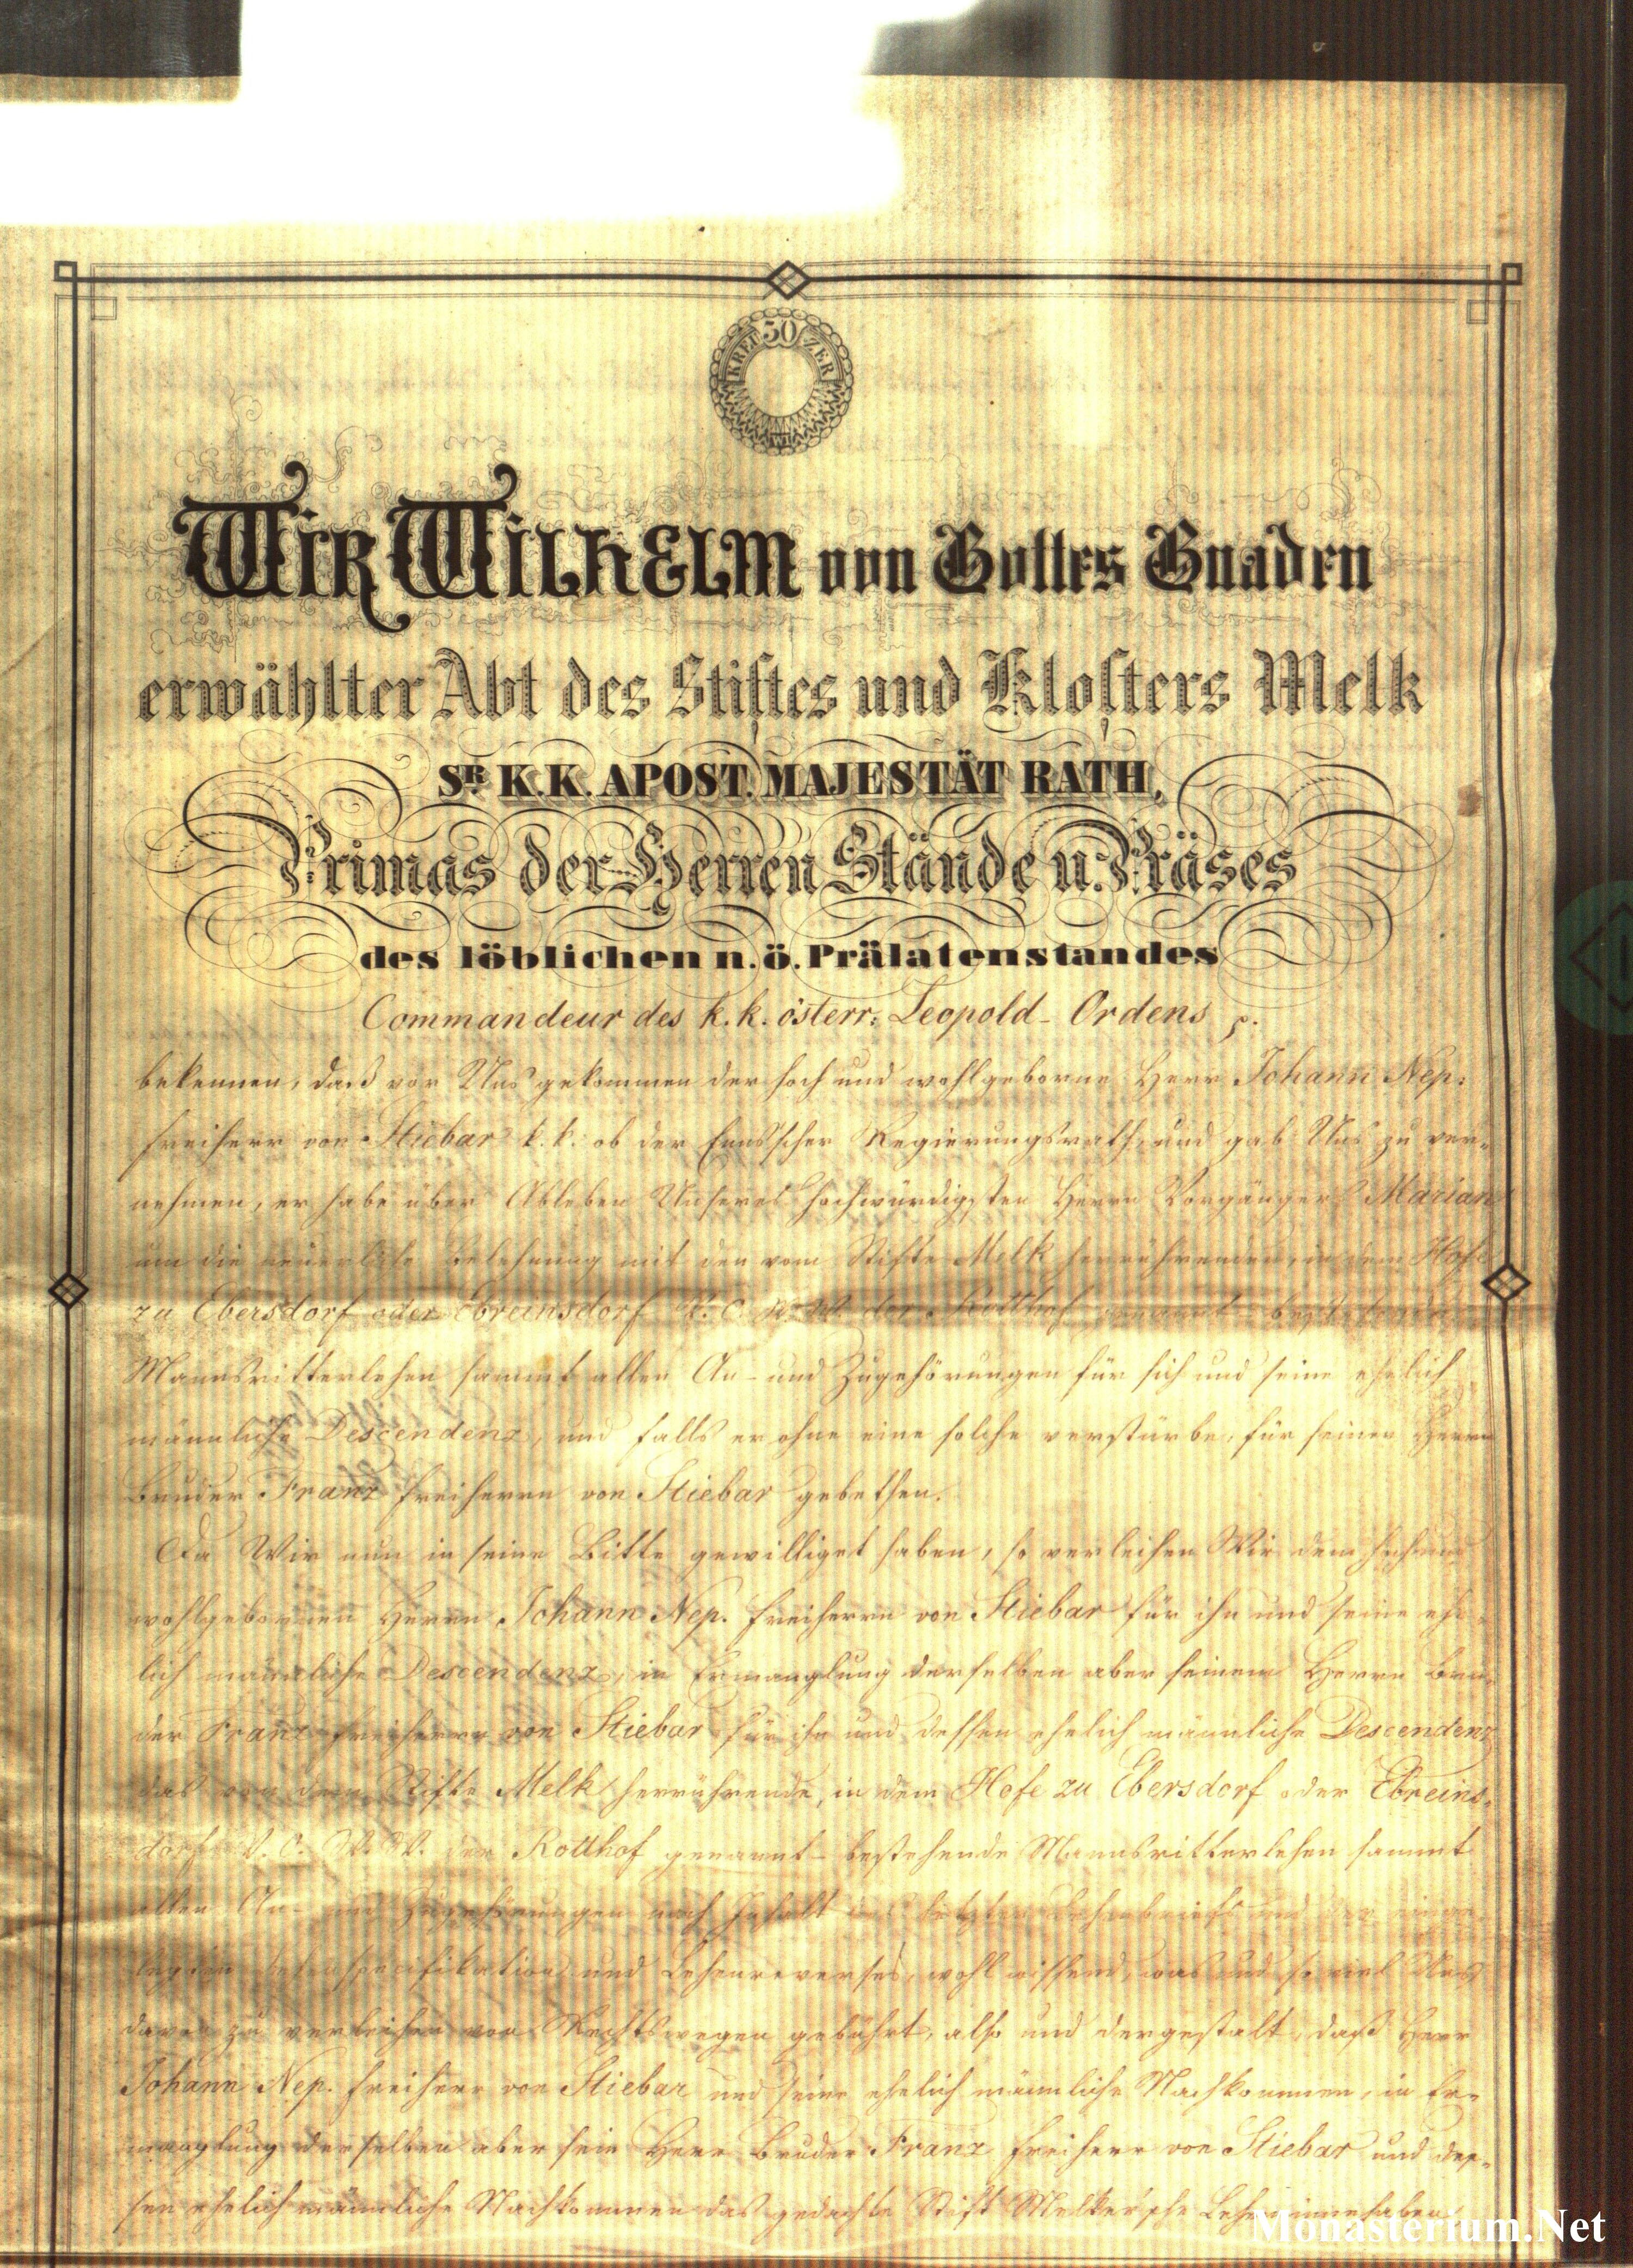 30
KREUZER
WI
WIR WILHELM von Gottes Gnaden
erwählter Abt des Stiftes und Klosters Melk
SR K.K. APOST. MAJESTÄT RATH,
Primas der Herren Stände u. Präses
des löblichen n. ö. Prälatenstandes
Commandeur des k. k. österr: Leopold- Ordens
bekennen, daß vor Uns gekommen der hoch und wohlgeborne Herr Johann Nep:
Freiherr von Stiebar k. k. ob der Ennß'scher Regierungsrath, und gab Uns zu ver-
nehmen, er habe über Ableben Unseres hochwürdigsten Herrn Vorgängers Marian
um die neuerliche Belehnung mit den vom Stifte Melk herrührenden, in dem Hofe
zu Ebersdorf oder Ebreinsdorf V. O. W. W. der Rotthof genannt - bestehende
Mannsritterlehen sammt allen An- und Zugehörungen für sich und seine ehelich
männliche Descendenz, und falls er ohne eine solche verstürbe, für seinen Herrn
Bruder Franz Freiherrn von Stiebar gebethen.
Da Wir nun in seine Bitte gewilliget haben, so verleihen Wir dem hoch und
wohlgebornen Herrn Johann Nep. Freiherrn von Stiebar für ihn und seine ehe-
lich männliche Descendenz, in Ermanglung derselben aber seinem Herrn Bru-
der Franz Freiherrn von Stiebar für ihn und dessen ehelich männliche Descendenz
das von dem Stifte Melk herrührende, in dem Hofe zu Ebersdorf oder Ebreins-
dorf V. O. W. W. der Rotthof genannt - bestehende Mannsritterlehen sammt
allen An- und Zugehörungen nach Inhalt des letzten Lehenbriefs und der einge-
legten und Lehenreverses, wohl wissend, was und so viel Uns
davon zu verleihen von Rechtswegen gebührt, also und dergestalt, daß Herr
Johann Nep. Freiherr von Stiebar und seine ehelich männliche Nachkommen, in Er-
manglung derselben aber sein Herr Bruder Franz Freiherr von Stiebar und des-
sen ehelich männliche Nachkommen das gedachte Stift Melker'sche Lehen innehaben,
Monasterium.Net